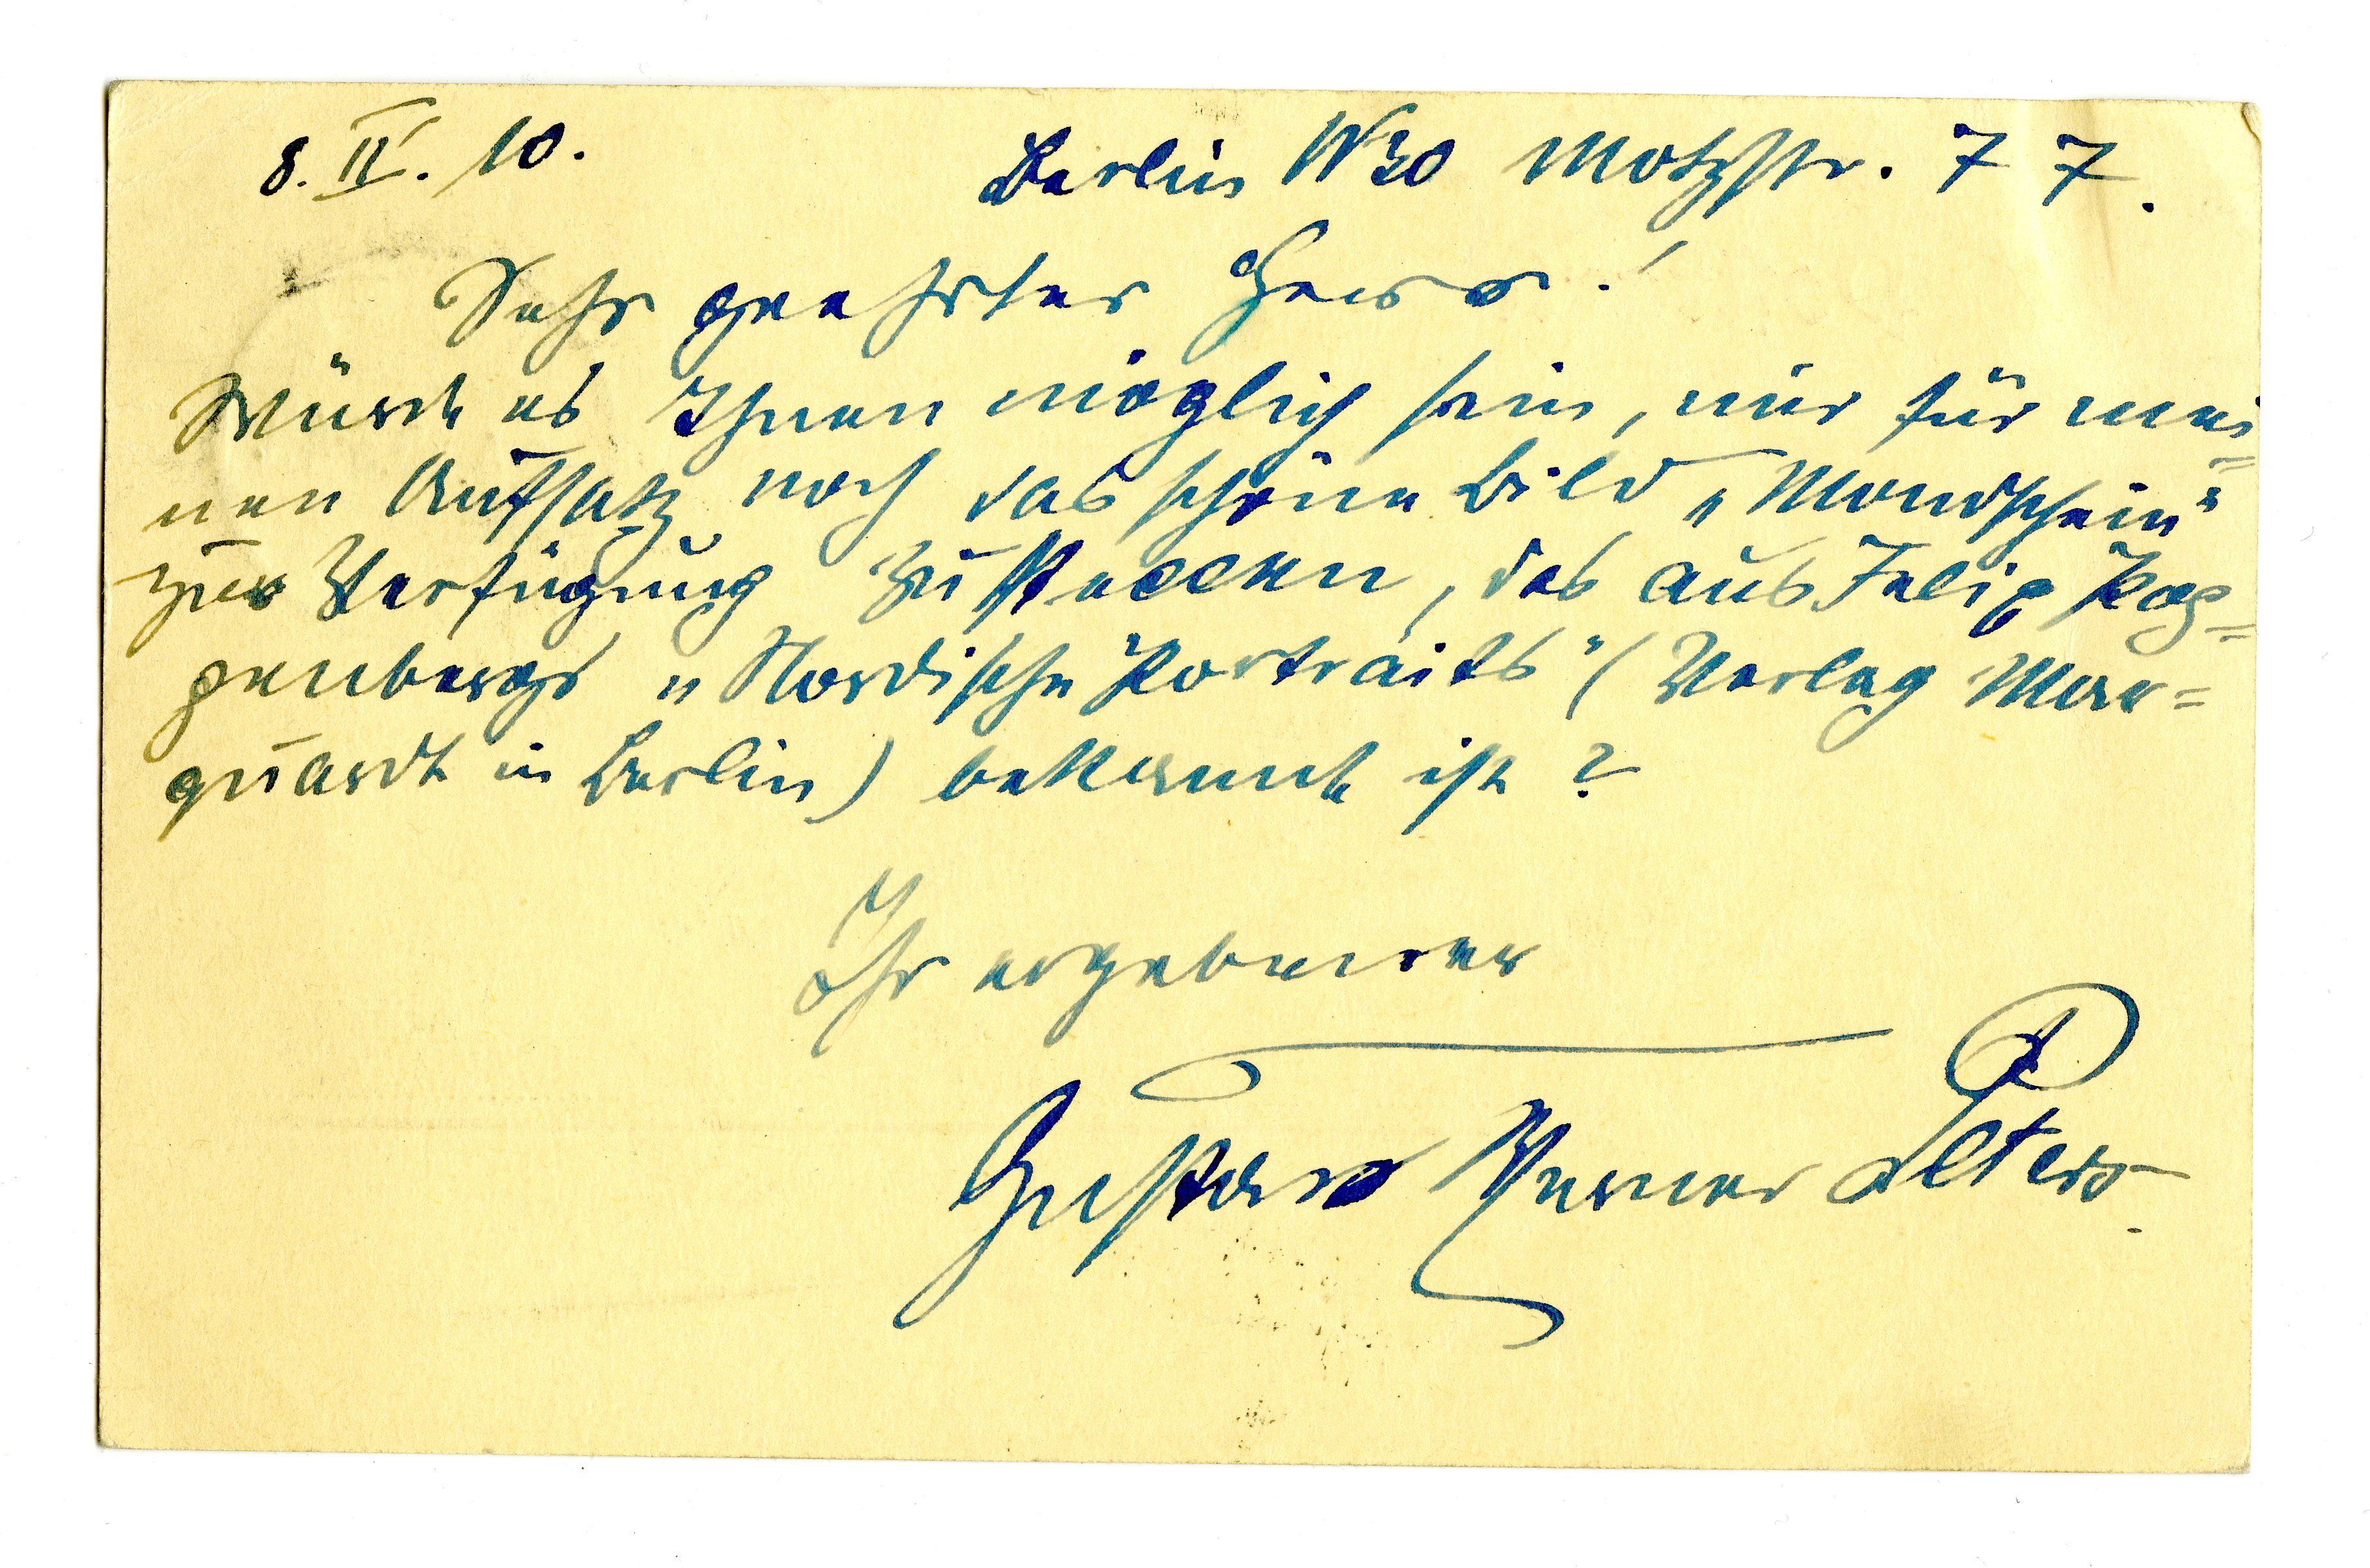 8. II. 10. Berlin W30 Motzstr. 77.
Sehr geehrter Herr!
Würde es Ihnen möglich sein, mir für mei=
nen Aufsatz noch das schöne Bild „Mondschein"
zur Verfügung zu stellen, das aus Felix Pop=
penbergs „Nordische Portraits" (Verlag Mar=
quardt in Berlin) bekannt ist?
Ihr ergebener
Gustav Werner Peters.